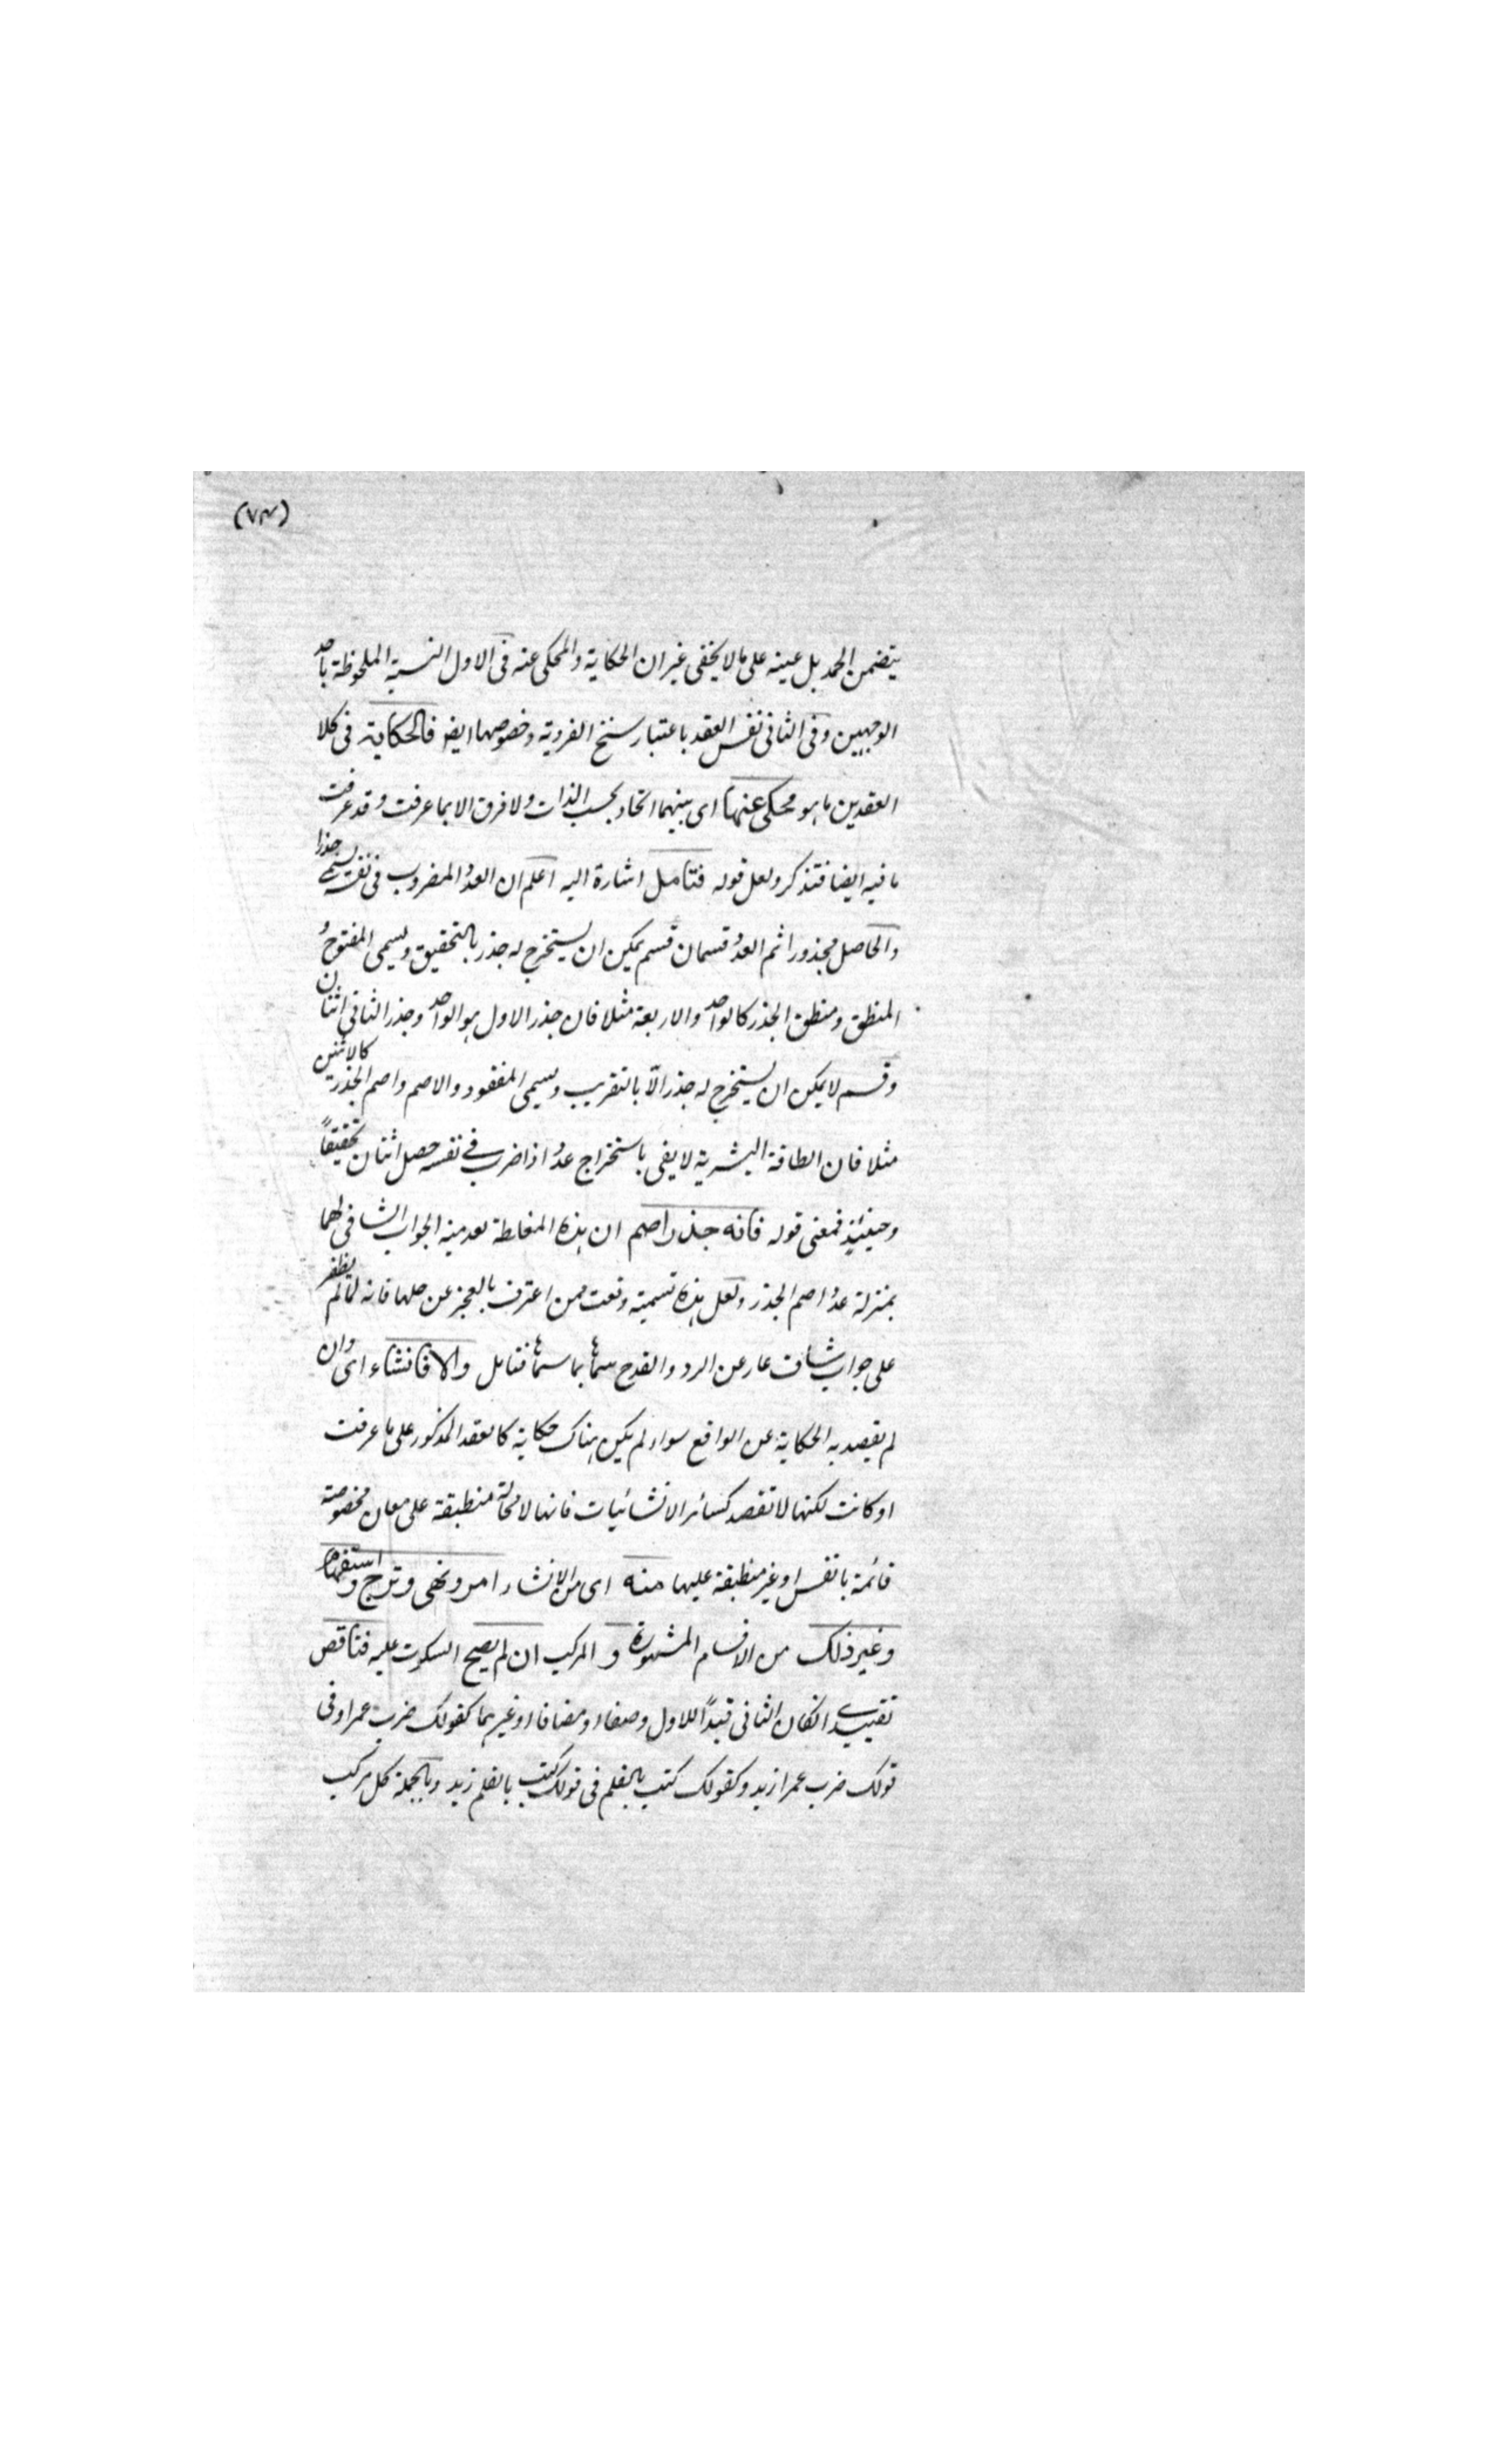 (٧٣)
يتضمن الحمد بل عينه على ما لا يخفى غير ان الحكاية والمحكى عنه فى الاول النسبة الملحوظة باحد
الوجهين وفى الثانى نفس العقد باعتبار سنخ الفردية وخصوصها ايضا فالحكاية فى كلا
العقدين ما هو محكى عنها اى بينهما اتحاد بحسب الذات ولا فرق الا بما عرفت وقد عرفت
ما فيه ايضا فتذكر ولعل قوله فتأمل اشارة اليه اعلم ان العدد المضروب فى نفسه يسمى جذرا
والحاصل مجذورا ثم العدد قسمان قسم يمكن ان يستخرج له جذر بالتحقيق ويسمى المفتوح و
المنطق ومنطق الجذر كالواحد والاربعة مثلا فان جذر الاول هو الواحد وجذر الثانى اثنان
وقسم لا يمكن ان يستخرج له جذر الّا بالتقريب ويسمى المفقود والاصم واصم الجذر كالاثنين
مثلا فان الطاقة البشرية لا يفى باستخراج عدد اذا ضرب فى نفسه حصل اثنان تحقيقاً
وحينئذ فمعنى قوله فانه جذر اصم ان هذه المغالطة لعدمية الجواب الشافى لها
بمنزلة عدد اصم الجذر ولعل هذه تسمية وقعت ممن اعترف بالعجز عن حلها فانه لما لم يظفر
على جواب شاف عار عن الرد والقدح سماها بما سماها فتأمل والا فانشاء اى وان
لم يقصد به الحكاية عن الواقع سواء لم يكن هناك حكاية كالعقد المذكور على ما عرفت
او كانت لكنها لا تقصد كسائر الانشائيات فانها لا محالة منطبقة على معان مخصوصة
قائمة بالنفس او غير منطبقة عليها منه اى من الانشاء امر ونهى وترج واستفهام
وغير ذلك من الاقسام المشهورة و المركب ان لم يصح السكوت عليه فناقص
تقييدى انكان الثانى قيدًا للاول وصفا او مضافا او غيرهما كقولك ضرب عمرا وفى
قولك ضرب عمرا زيد وكقولك كتب بالقلم فى قولك كتب بالقلم زيد وبالجملة كل مركب